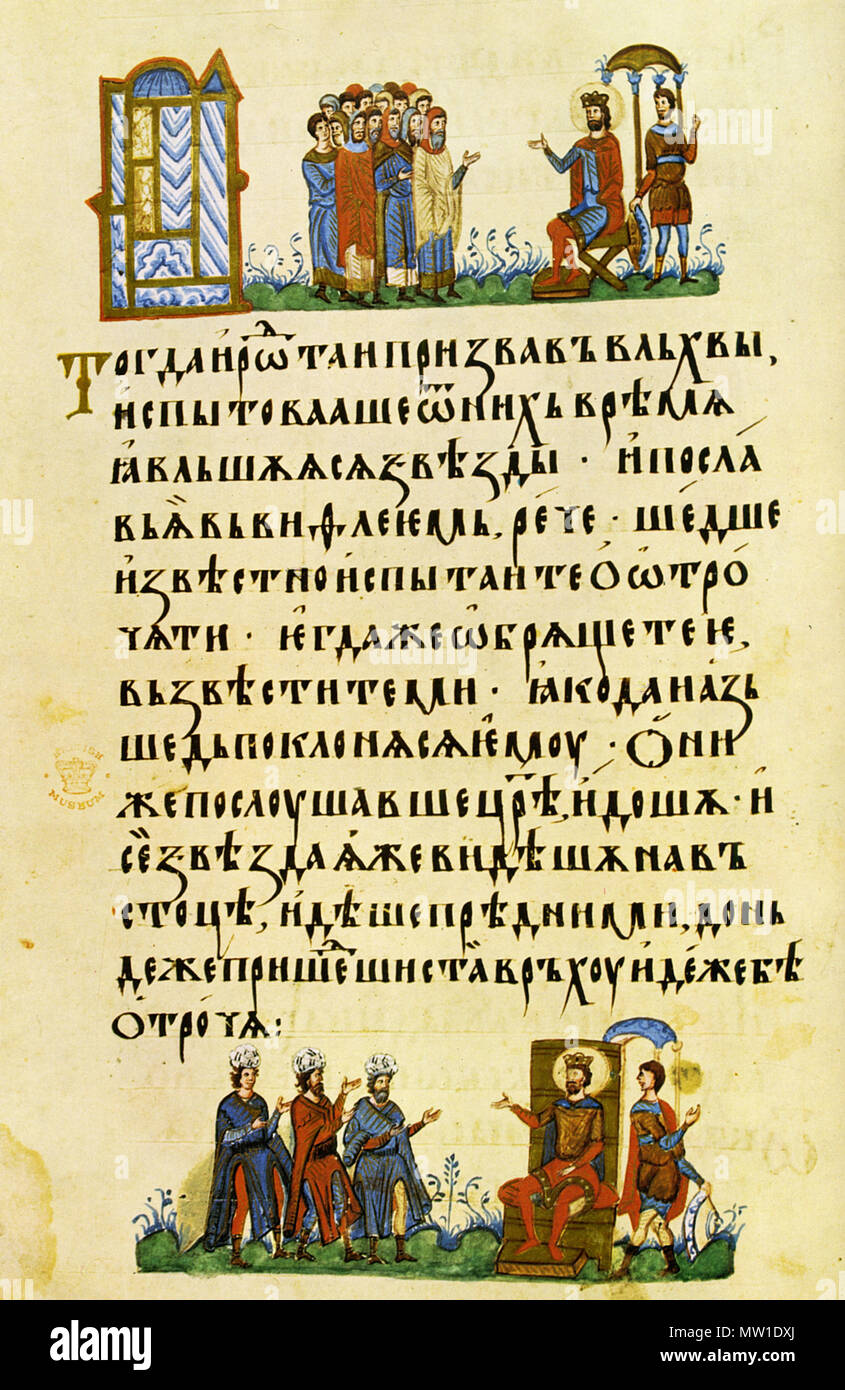 Тогда ирѡ҃ таи призвавъ вльхвы,
испытоваашеѿнихъ врѣмѧ
ꙗвльшѫѧсѧ ꙁвѣꙁды · и посла
вь ѧ҆ вь виѳлеѥмь, рече · шедше
иꙁвѣстно испытаите ѡ ѡтро
чѧти · ѥгда же ѡбрѧщете ѥ,
вьꙁвѣстите ми · ꙗко да и аꙁь
шедь поклонѧсѧ ѥмоу · Они
же послоушавше цр҃ѣ, идошѫ · и
се ꙁвѣꙁда ѧже видѣшѫ на въ
стоцѣ, идѣше прѣд ними, донь
деже пришеⷣши ста врьхоу идеже бѣ
отрочѧ:
BRITISH
MUSEUM
alamy
Image ID: MW1DXJ
www.alamy.com